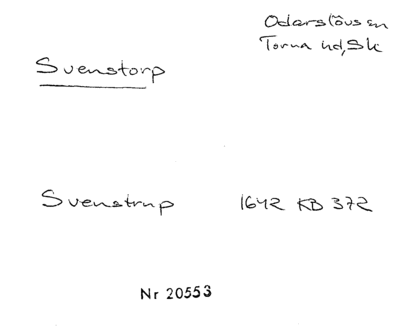 Oderslövs sn
Torna hd, Sk
Svenstorp
Svenstrup 1642 KB 372
Nr 20553